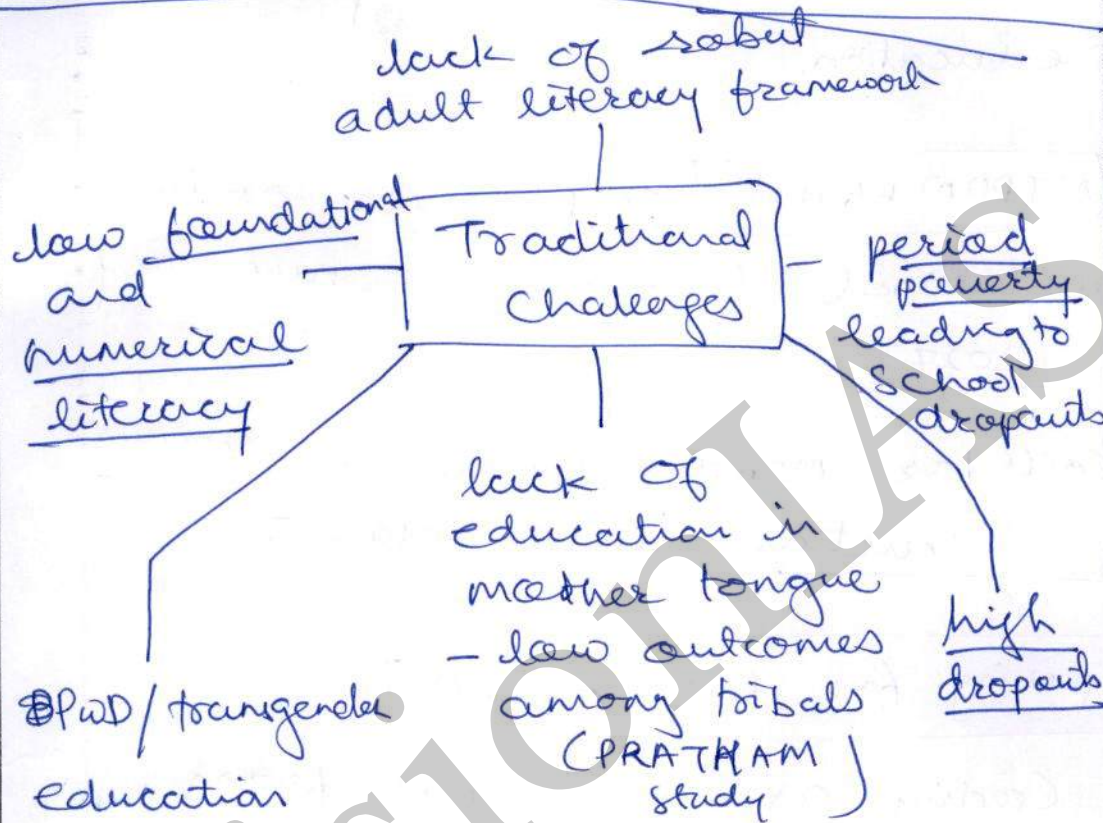 lack of robust
adult literacy framework
low foundational
and
numerical
literacy
Traditional
Challenges
period
poverty
leading to
school
dropouts
lack of
education in
mother tongue
- low outcomes
among tribals
(PRATHAM
study)
high
dropouts
PwD/transgender
education
VisionIAS